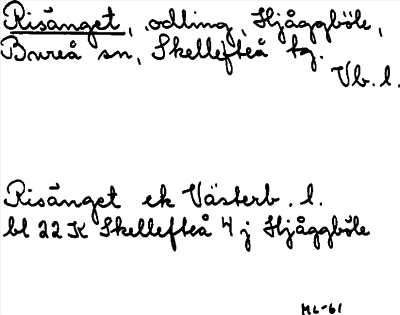 Risänget, odling, Hjåggböle,
Bureå sn, Skellefteå tg.
Vb. l.
Risänget ek Västerb. l.
bl 22 K Skellefteå 4 j Hjåggböle
ML-61